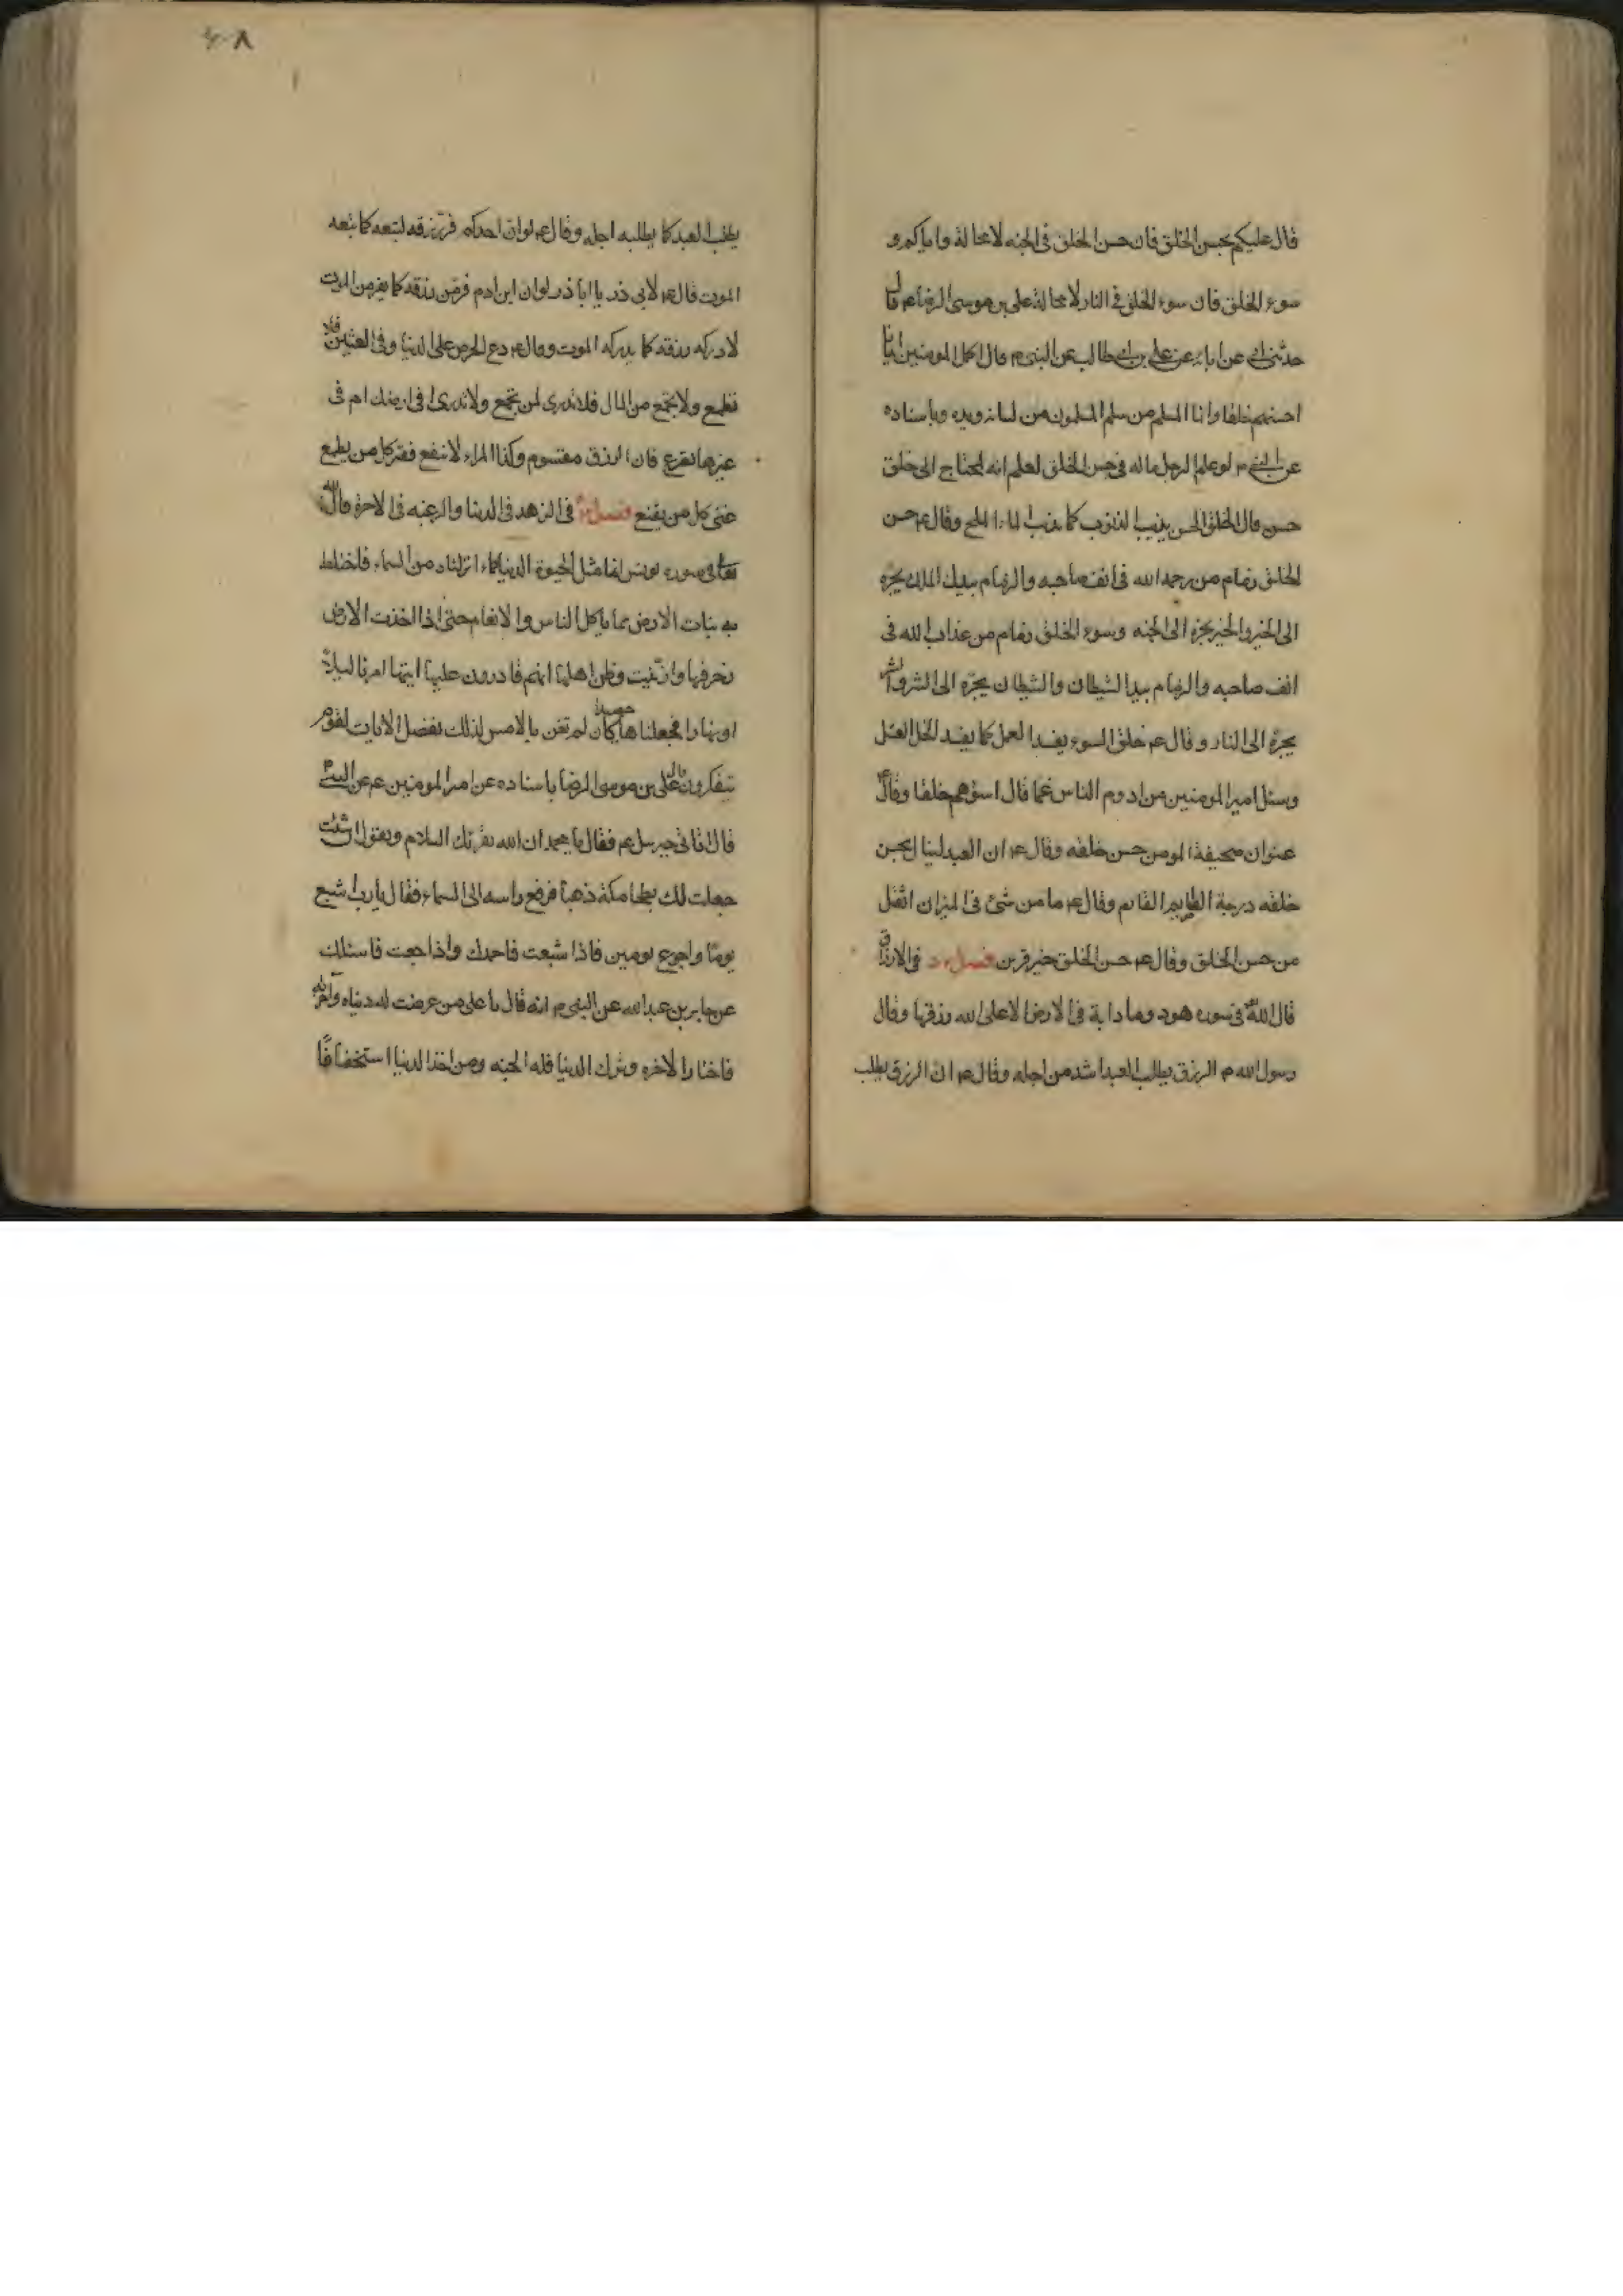 قال عليكم بحسن الخلق فان حسن الخلق فى الجنه لا محالة واياكم و
سوء الخلق فان سوء الخلق فى النار لا محالة على بن موسى الرضا ع قال
حدثنى ابى عن ابائه عن على بن ابى طالب عن النبى م قال اكمل المومنين ايمانا
احسنهم خلقا وانا المسلم من سلم المسلمون من لسانه ويده وباسناده
عن النبى م لو علم الرجل ماله فى حسن الخلق لعلم انه لمحتاج الى خلق
حسن وقال الخلق الحسن يذيب الذنوب كما يذيب الماء الملح وقال ع حسن
الخلق زمام من رحمه الله فى انف صاحبه والزمام بيد الملك يجره
الى الخير والخير يجره الى الجنه وسوء الخلق زمام من عذاب الله فى
انف صاحبه والزمام بيد الشيطان والشيطان يجره الى الشر والشر
يجره الى النار وقال ع خلق السوء يفسد العمل كما يفسد الخل العسل
وسئل امير المومنين من ادوم الناس غما قال اسوءهم خلقا وقال ع
عنوان صحيفة المومن حسن خلقه وقال ع ان العبد لينال بحسن
خلقه درجة الصايم القايم وقال ع ما من شئ فى الميزان اثقل
من حسن الخلق وقال ع حسن الخلق خير قرين فصل فى الارزاق
قال الله فى سوره هود وما دابة فى الارض الا على الله رزقها وقال
رسول الله م الرزق يطلب العبد اشد من اجله وقال ع ان الرزق يطلب
٤٠٨
يطلب العبد كما يطلبه اجله وقال ع لو ان احدكم فر من رزقه لتبعه كما تبعه
الموت قال ع لابى ذر يا ابا ذر لو ان ابن ادم فر من رزقه كما يفر من الموت
لادركه رزقه كما يدركه الموت وقال ع دع الحرص على الدنيا وفى العيش فلا
تطمع ولا تجمع من المال فلا تدرى لمن تجمع ولا تدرى افى ارضك ام فى
غيرها تصرع فان الرزق مقسوم وكد المرء لا ينفع فقير كل من يطمع
غنى كل من يقنع فصل فى الزهد فى الدنيا والرغبه فى الاخرة قال الله
تعالى فى سوره يونس انما مثل الحيوة الدنيا كماء انزلناه من السماء فاختلط
به نبات الارض مما ياكل الناس والانعام حتى اذا اخذت الارض
زخرفها وازينت وظن اهلها انهم قادرون عليها اتيها امرنا ليلا
او نهارا فجعلناها حصيدا كان لم تغن بالامس لذلك نفصل الايات لقوم
يتفكرون على بن موسى الرضا باسناده عن امير المومنين ع عن النبى م
قال اتانى جبرئيل ع فقال يا محمد ان الله يقرئك السلام ويقول ان شئت
جعلت لك بطحا مكة ذهبا فرفع راسه الى السماء فقال يا رب اشبع
يوما واجوع يومين فاذا شبعت فاحمدك واذا جعت فاسئلك
عن جابر بن عبد الله عن النبى م انه قال يا على من عرضت له دنياه وآخرته
فاختار الاخره وترك الدنيا فله الجنه ومن اخذ الدنيا استخفافا